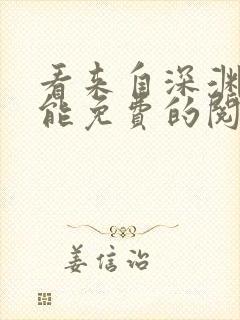 看来自深渊
能免费的阅
姜信治